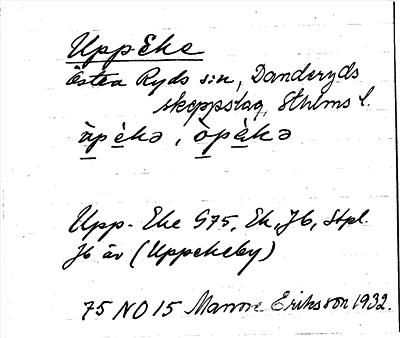 UppEke
Östra Ryds sn, Danderyds
skeppslag, Sthlms l.
ùpèkə, òpèkə
Upp-Eke G75, Ek, Jb, Stpl.
Jb äv (Uppekeby)
75 NO 15 Manne Eriksson 1932.